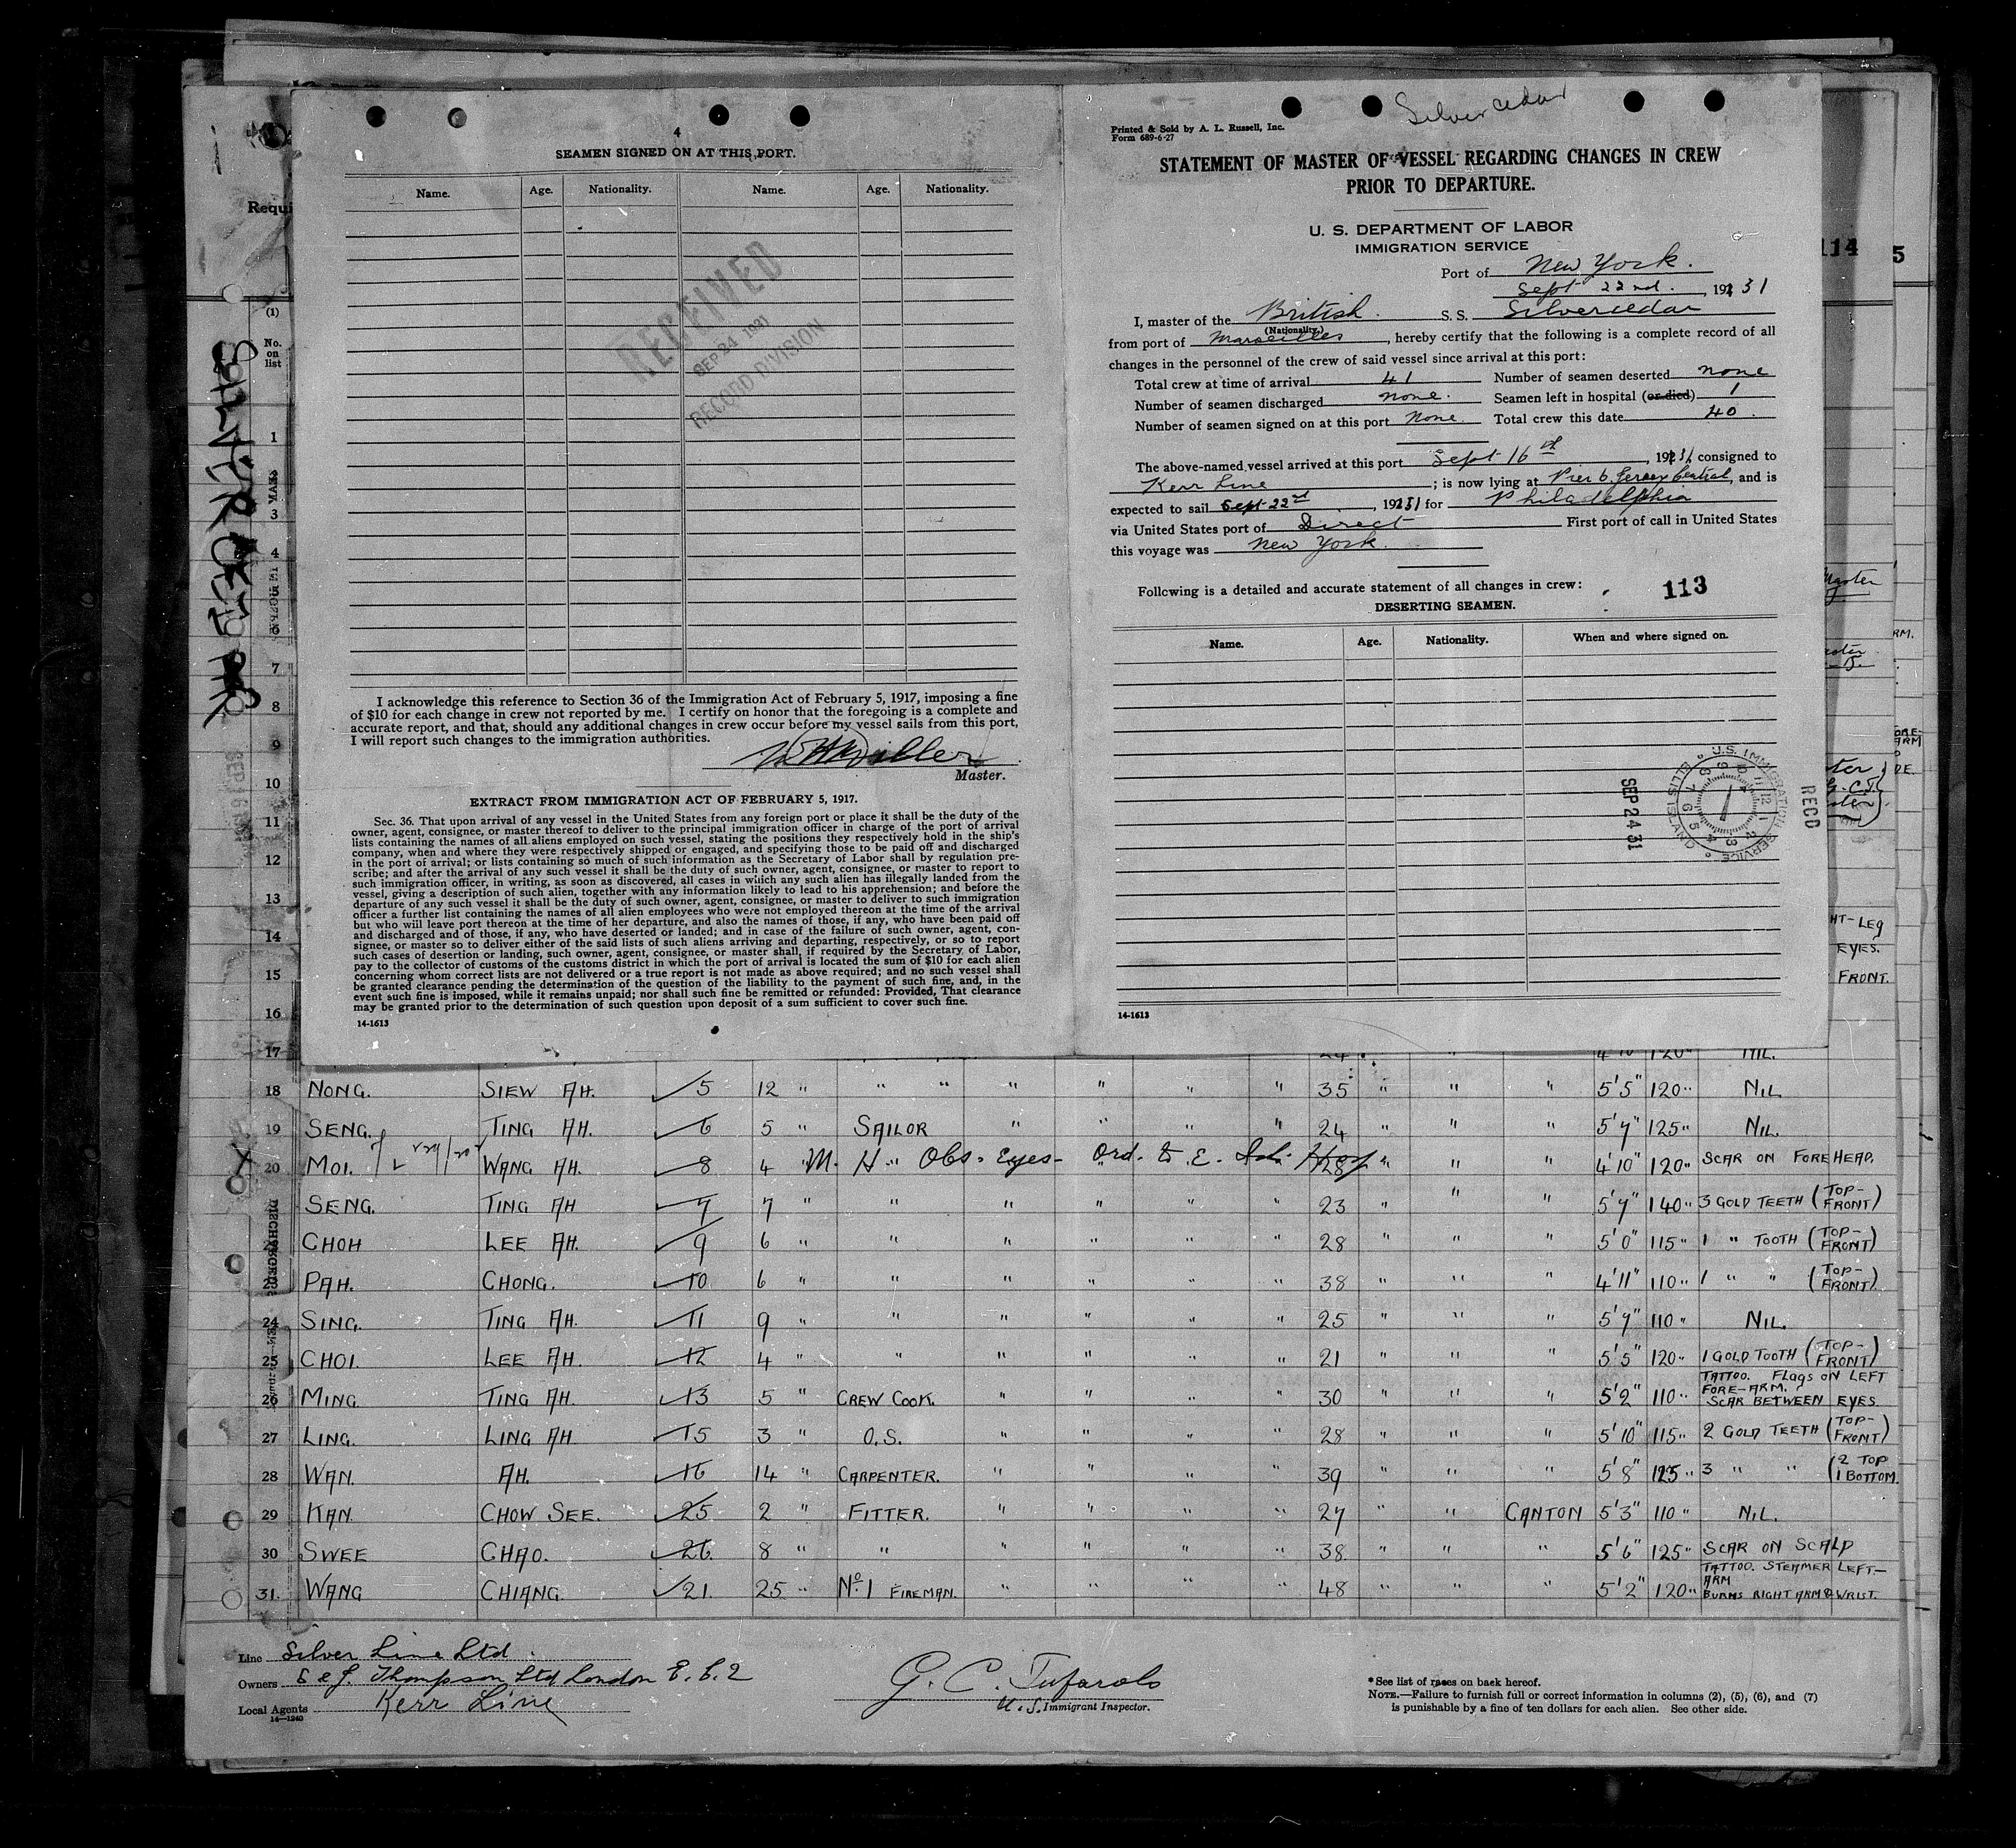 4
SEAMEN SIGNED ON AT THIS PORT.
Name. Age. Nationality. Name. Age. Nationality.
RECEIVED
SEP 24 1931
RECORD DIVISION
I acknowledge this reference to Section 36 of the Immigration Act of February 5, 1917, imposing a fine
of $10 for each change in crew not reported by me. I certify on honor that the foregoing is a complete and
accurate report, and that, should any additional changes in crew occur before my vessel sails from this port,
I will report such changes to the immigration authorities.
Master.
EXTRACT FROM IMMIGRATION ACT OF FEBRUARY 5, 1917.
Sec. 36. That upon arrival of any vessel in the United States from any foreign port or place it shall be the duty of the
owner, agent, consignee, or master thereof to deliver to the principal immigration officer in charge of the port of arrival
lists containing the names of all aliens employed on such vessel, stating the positions they respectively hold in the ship's
company, when and where they were respectively shipped or engaged, and specifying those to be paid off and discharged
in the port of arrival; or lists containing so much of such information as the Secretary of Labor shall by regulation pre-
scribe; and after the arrival of any such vessel it shall be the duty of such owner, agent, consignee, or master to report to
such immigration officer, in writing, as soon as discovered, all cases in which any such alien has illegally landed from the
vessel, giving a description of such alien, together with any information likely to lead to his apprehension; and before the
departure of any such vessel it shall be the duty of such owner, agent, consignee, or master to deliver to such immigration
officer a further list containing the names of all alien employees who were not employed thereon at the time of the arrival
but who will leave port thereon at the time of her departure, and also the names of those, if any, who have been paid off
and discharged and of those, if any, who have deserted or landed; and in case of the failure of such owner, agent, con-
signee, or master so to deliver either of the said lists of such aliens arriving and departing, respectively, or so to report
such cases of desertion or landing, such owner, agent, consignee, or master shall, if required by the Secretary of Labor,
pay to the collector of customs of the customs district in which the port of arrival is located the sum of $10 for each alien
concerning whom correct lists are not delivered or a true report is not made as above required; and no such vessel shall
be granted clearance pending the determination of the question of the liability to the payment of such fine, and, in the
event such fine is imposed, while it remains unpaid; nor shall such fine be remitted or refunded: Provided, That clearance
may be granted prior to the determination of such question upon deposit of a sum sufficient to cover such fine.
14-1613
Silvercedar
Printed & Sold by A. L. Russell, Inc.
Form 689-6-27
STATEMENT OF MASTER OF VESSEL REGARDING CHANGES IN CREW
PRIOR TO DEPARTURE.
U. S. DEPARTMENT OF LABOR
IMMIGRATION SERVICE
Port of New York.
Sept 22nd. , 1931
I, master of the British. S. S. Silvercedar
(Nationality.)
from port of Marseilles , hereby certify that the following is a complete record of all
changes in the personnel of the crew of said vessel since arrival at this port:
Total crew at time of arrival 41 Number of seamen deserted none
Number of seamen discharged none. Seamen left in hospital (or died) 1
Number of seamen signed on at this port None. Total crew this date 40.
The above-named vessel arrived at this port Sept 16th , 1931, consigned to
Kerr Line ; is now lying at Pier 6 Jersey Central, and is
expected to sail Sept 22nd , 1931 for Philadelphia
via United States port of Direct First port of call in United States
this voyage was New York.
Following is a detailed and accurate statement of all changes in crew:
113
DESERTING SEAMEN.
Name. Age. Nationality. When and where signed on.
U.S. IMMIGRATION SERVICE ELLIS ISLAND
SEP 24 31
RECD
14-1613
114
5
Requi
(1)
No. on list
SILVERCEDAR
1
3
4
5
6
7
8
9
10
11
12
13
14
15
16
17
HT-LEG
EYES.
FRONT.
24 4'10" 120" NIL.
18 NONG. SIEW AH. 5 12 " " " " " " " 35 " " " 5'5" 120" NIL.
19 SENG. TING AH. 6 5 " SAILOR " " " " 24 " " " 5'7" 125" NIL.
20 MOI. WANG AH. 8 4 " M. H. Obs. Eyes- Ord. to E. Isl. Hosp 28 " " " 4'10" 120" SCAR ON FOREHEAD.
SENG. TING AH 7 7 " " " " " " 23 " " " 5'7" 140" 3 GOLD TEETH (TOP-FRONT)
CHOH LEE AH. 9 6 " " " " " " 28 " " " 5'0" 115" 1 " TOOTH (TOP-FRONT)
23 PAH. CHONG. 10 6 " " " " " " 38 " " " 4'11" 110" 1 " " (TOP-FRONT).
24 SING. TING AH. 11 9 " " " " " " 25 " " " 5'7" 110" NIL.
25 CHOI. LEE AH. 12 4 " " " " " " 21 " " " 5'5" 120" 1 GOLD TOOTH (TOP-FRONT)
26 MING. TING AH. 13 5 " CREW COOK. " " " " 30 " " " 5'2" 110" TATTOO. FLAGS ON LEFT FORE-ARM. SCAR BETWEEN EYES.
27 LING. LING AH 15 3 " O.S. " " " " 28 " " " 5'10" 115" 2 GOLD TEETH (TOP-FRONT)
28 WAN. AH. 16 14 " CARPENTER. " " " " 39 " " " 5'8" 125" 3 " " (2 TOP 1 BOTTOM.
29 KAN. CHOW SEE. 25 2 " FITTER. " " " " 27 " " CANTON 5'3" 110" NIL.
30 SWEE CHAO. 26 8 " " " " " " 38. " " " 5'6" 125" SCAR ON SCALP
31. WANG CHIANG. 21. 25 " No. 1 FIREMAN. " " " " 48 " " " 5'2" 120" TATTOO. STEAMER LEFT-ARM BURNS RIGHT ARM & WRIST.
Line Silver Line Ltd.
Owners S & J. Thompson Ltd London E.C.2
Local Agents Kerr Line
14-1240
G. C. Tufarolo
U. S. Immigrant Inspector.
* See list of races on back hereof.
NOTE.—Failure to furnish full or correct information in columns (2), (5), (6), and (7)
is punishable by a fine of ten dollars for each alien. See other side.